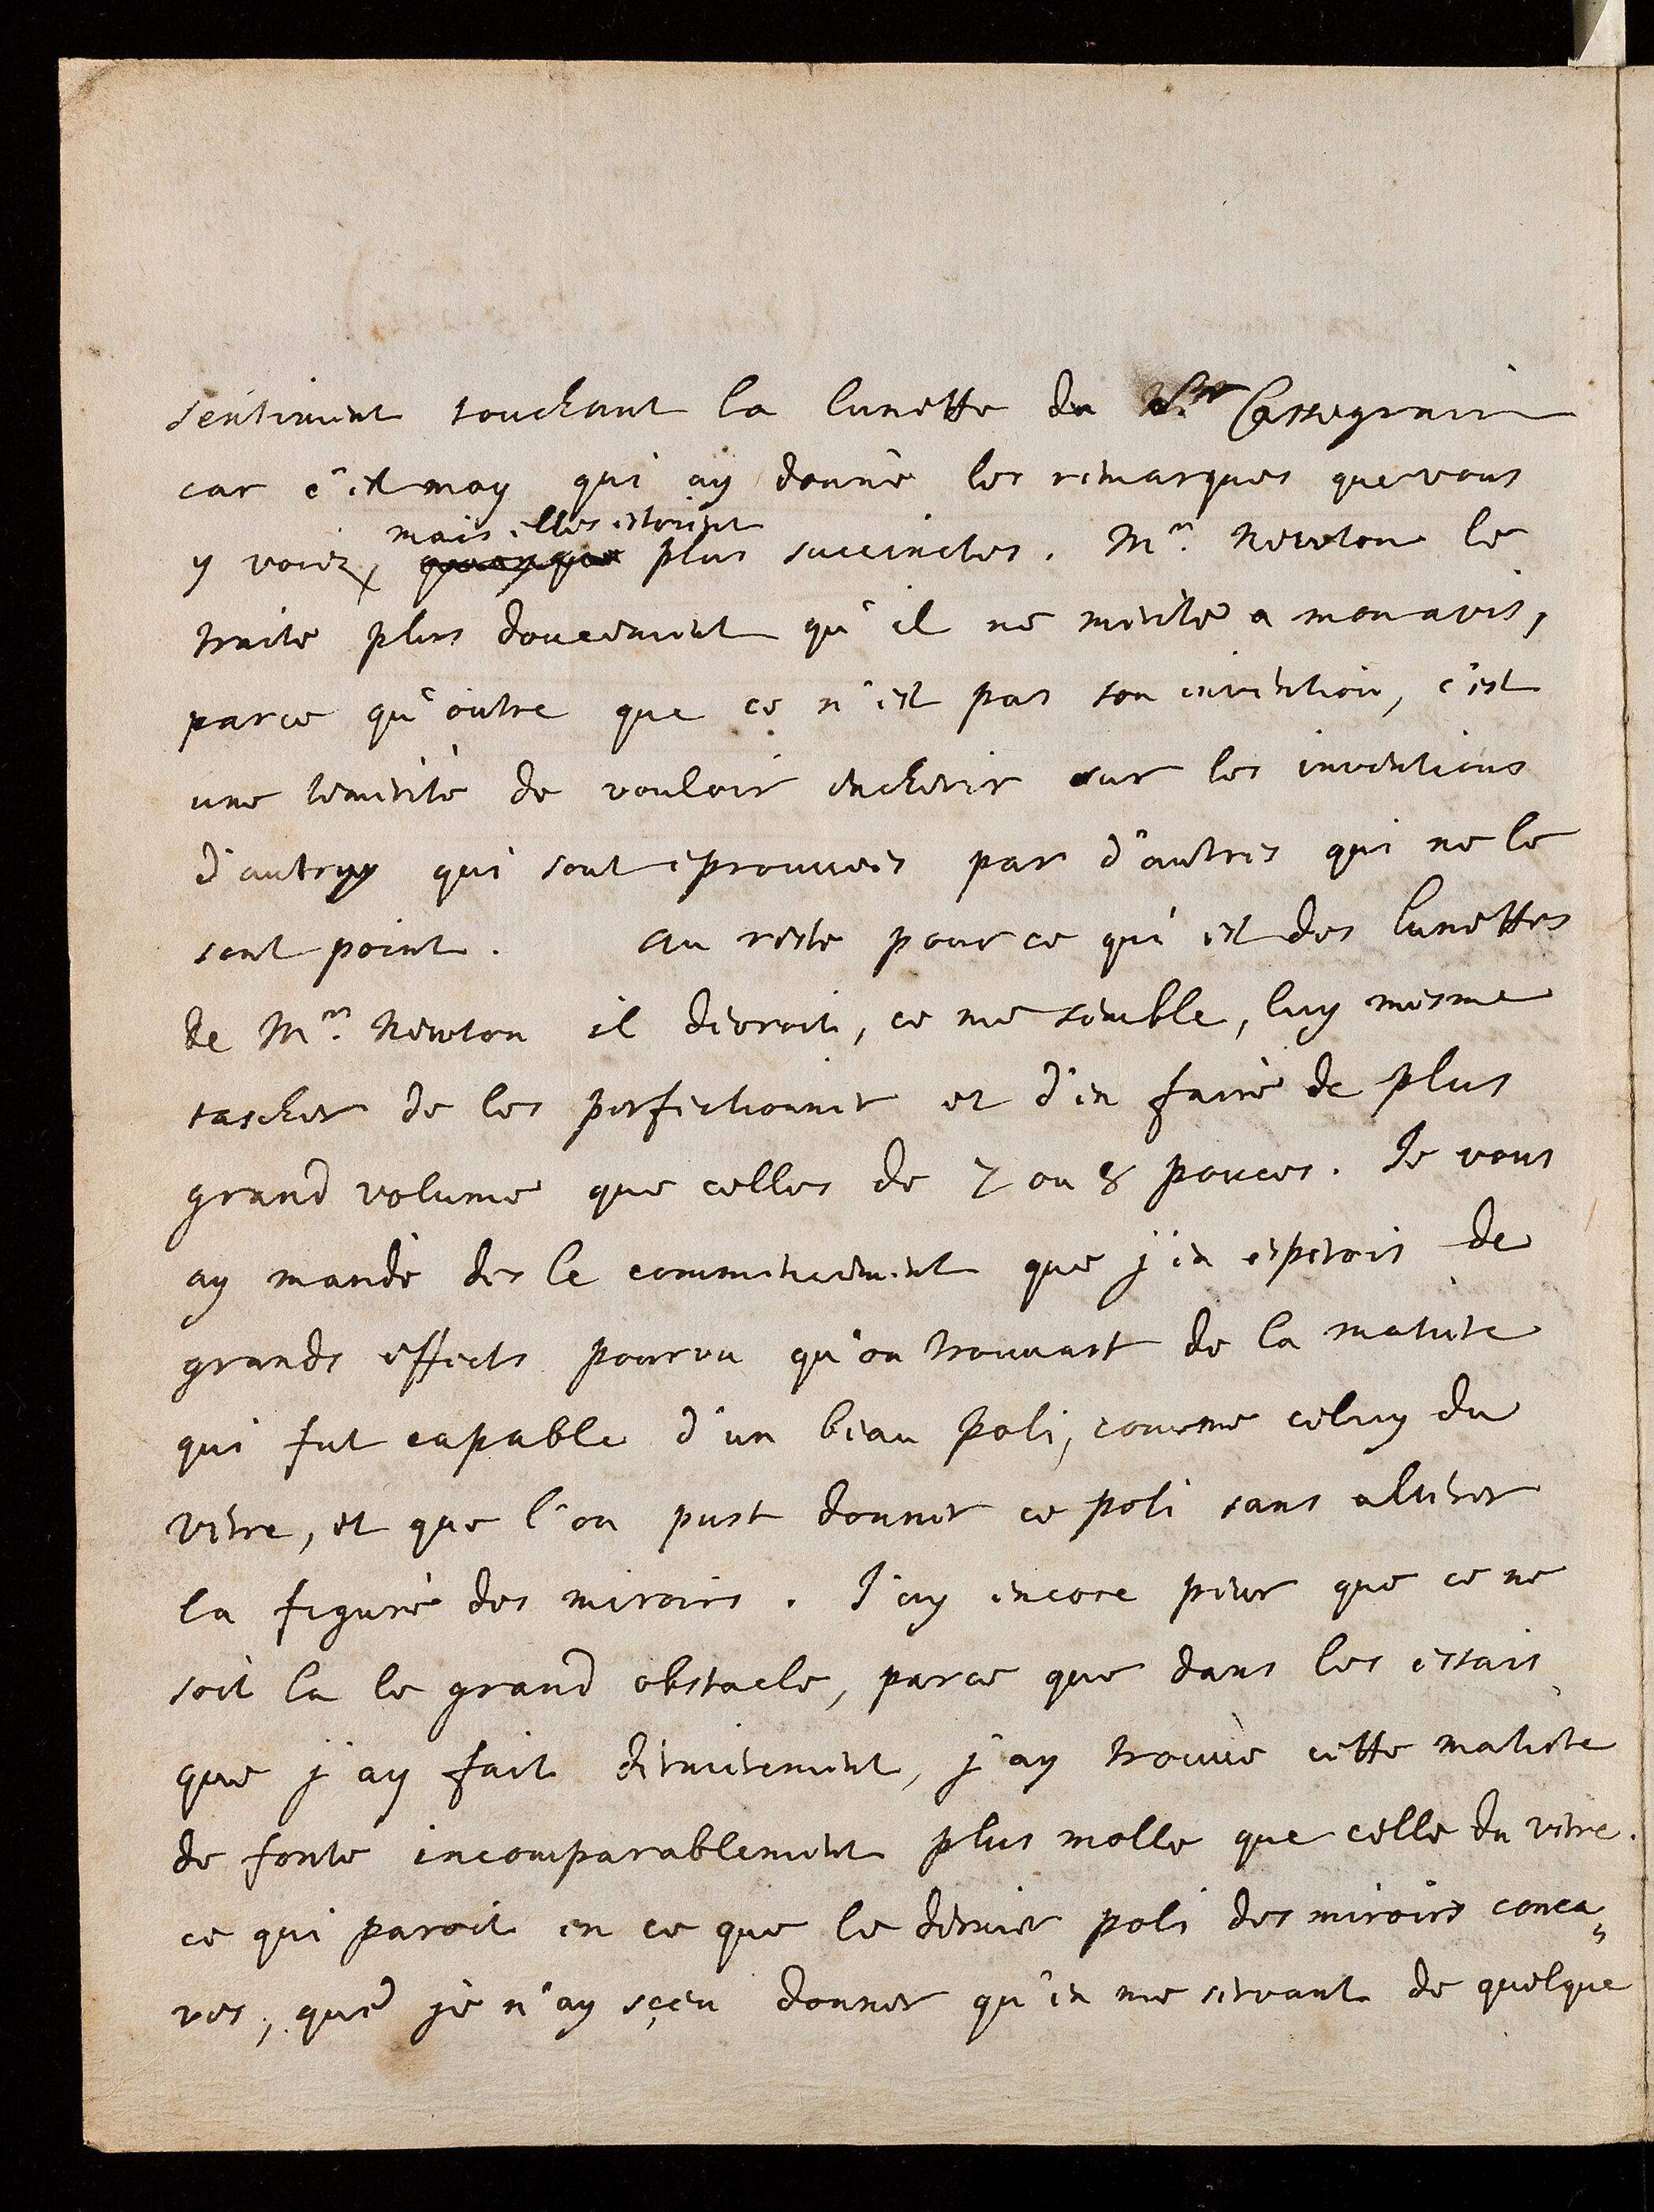 sentiment touchant la lunette du Sr Cassegrain
car c'est moy qui ay donnè les remarques que vous
y voiez, mais elles estoient
quoyque plus succinctes. Mr. Newton le
traite plus doucement qu'il ne merite a mon avis,
parce qu'outre que ce n'est pas son invention, c'est
une temeritè de vouloir encherir sur les inventions
d'autruy qui sont eprouvees par d'autres qui ne le
sont point. Au reste pour ce qui est des lunettes
de Mr. Newton il devroit, ce me semble, luy mesme
tascher de les perfectionner et d'en faire de plus
grand volume que celles de 7 ou 8 pouces. Je vous
ay mandè des le commencement que j'en esperois de
grands effects pourvu qu'on trouvast de la matiere
qui fut capable d'un beau poli, comme celuy du
verre, et que l'on pust donner ce poli sans alterer
la figure des miroirs. J'ay encore peur que ce ne
soit la le grand obstacle, parce que dans les essais
que j'ay fait dernierement, j'ay trouvè cette matiere
de fonte incomparablement plus molle que celle du verre.
ce qui paroit en ce que le dernier poli des miroirs conca„
ves, que je n'ay sçeu donner qu'en me servant de quelque